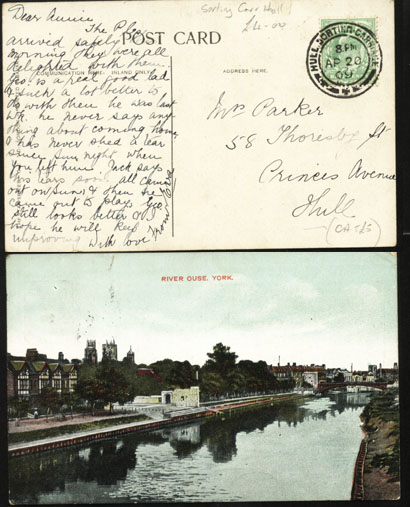 Sorting Carr Hall
£4-00
POST CARD
COMMUNICATION HERE. INLAND ONLY.
ADDRESS HERE.
HULL SORTING CARRIAGE
8 PM
AP 20
09
Dear Annie
The Plas
arrived safely
morning they were all
delighted with them
Geo. is a real good lad
& such a lot better to
do with then he was last
wk. he never says any
thing about coming home
& has never shed a tear
since Sun. night when
you left him. Jack says
his ears all came
out on Sun. & then he
came out to play. Geo
still looks better & I
hope he will keep
improving with love
from
Mrs Parker
58 Thoresby St
Princes Avenue
Hull
RIVER OUSE. YORK.